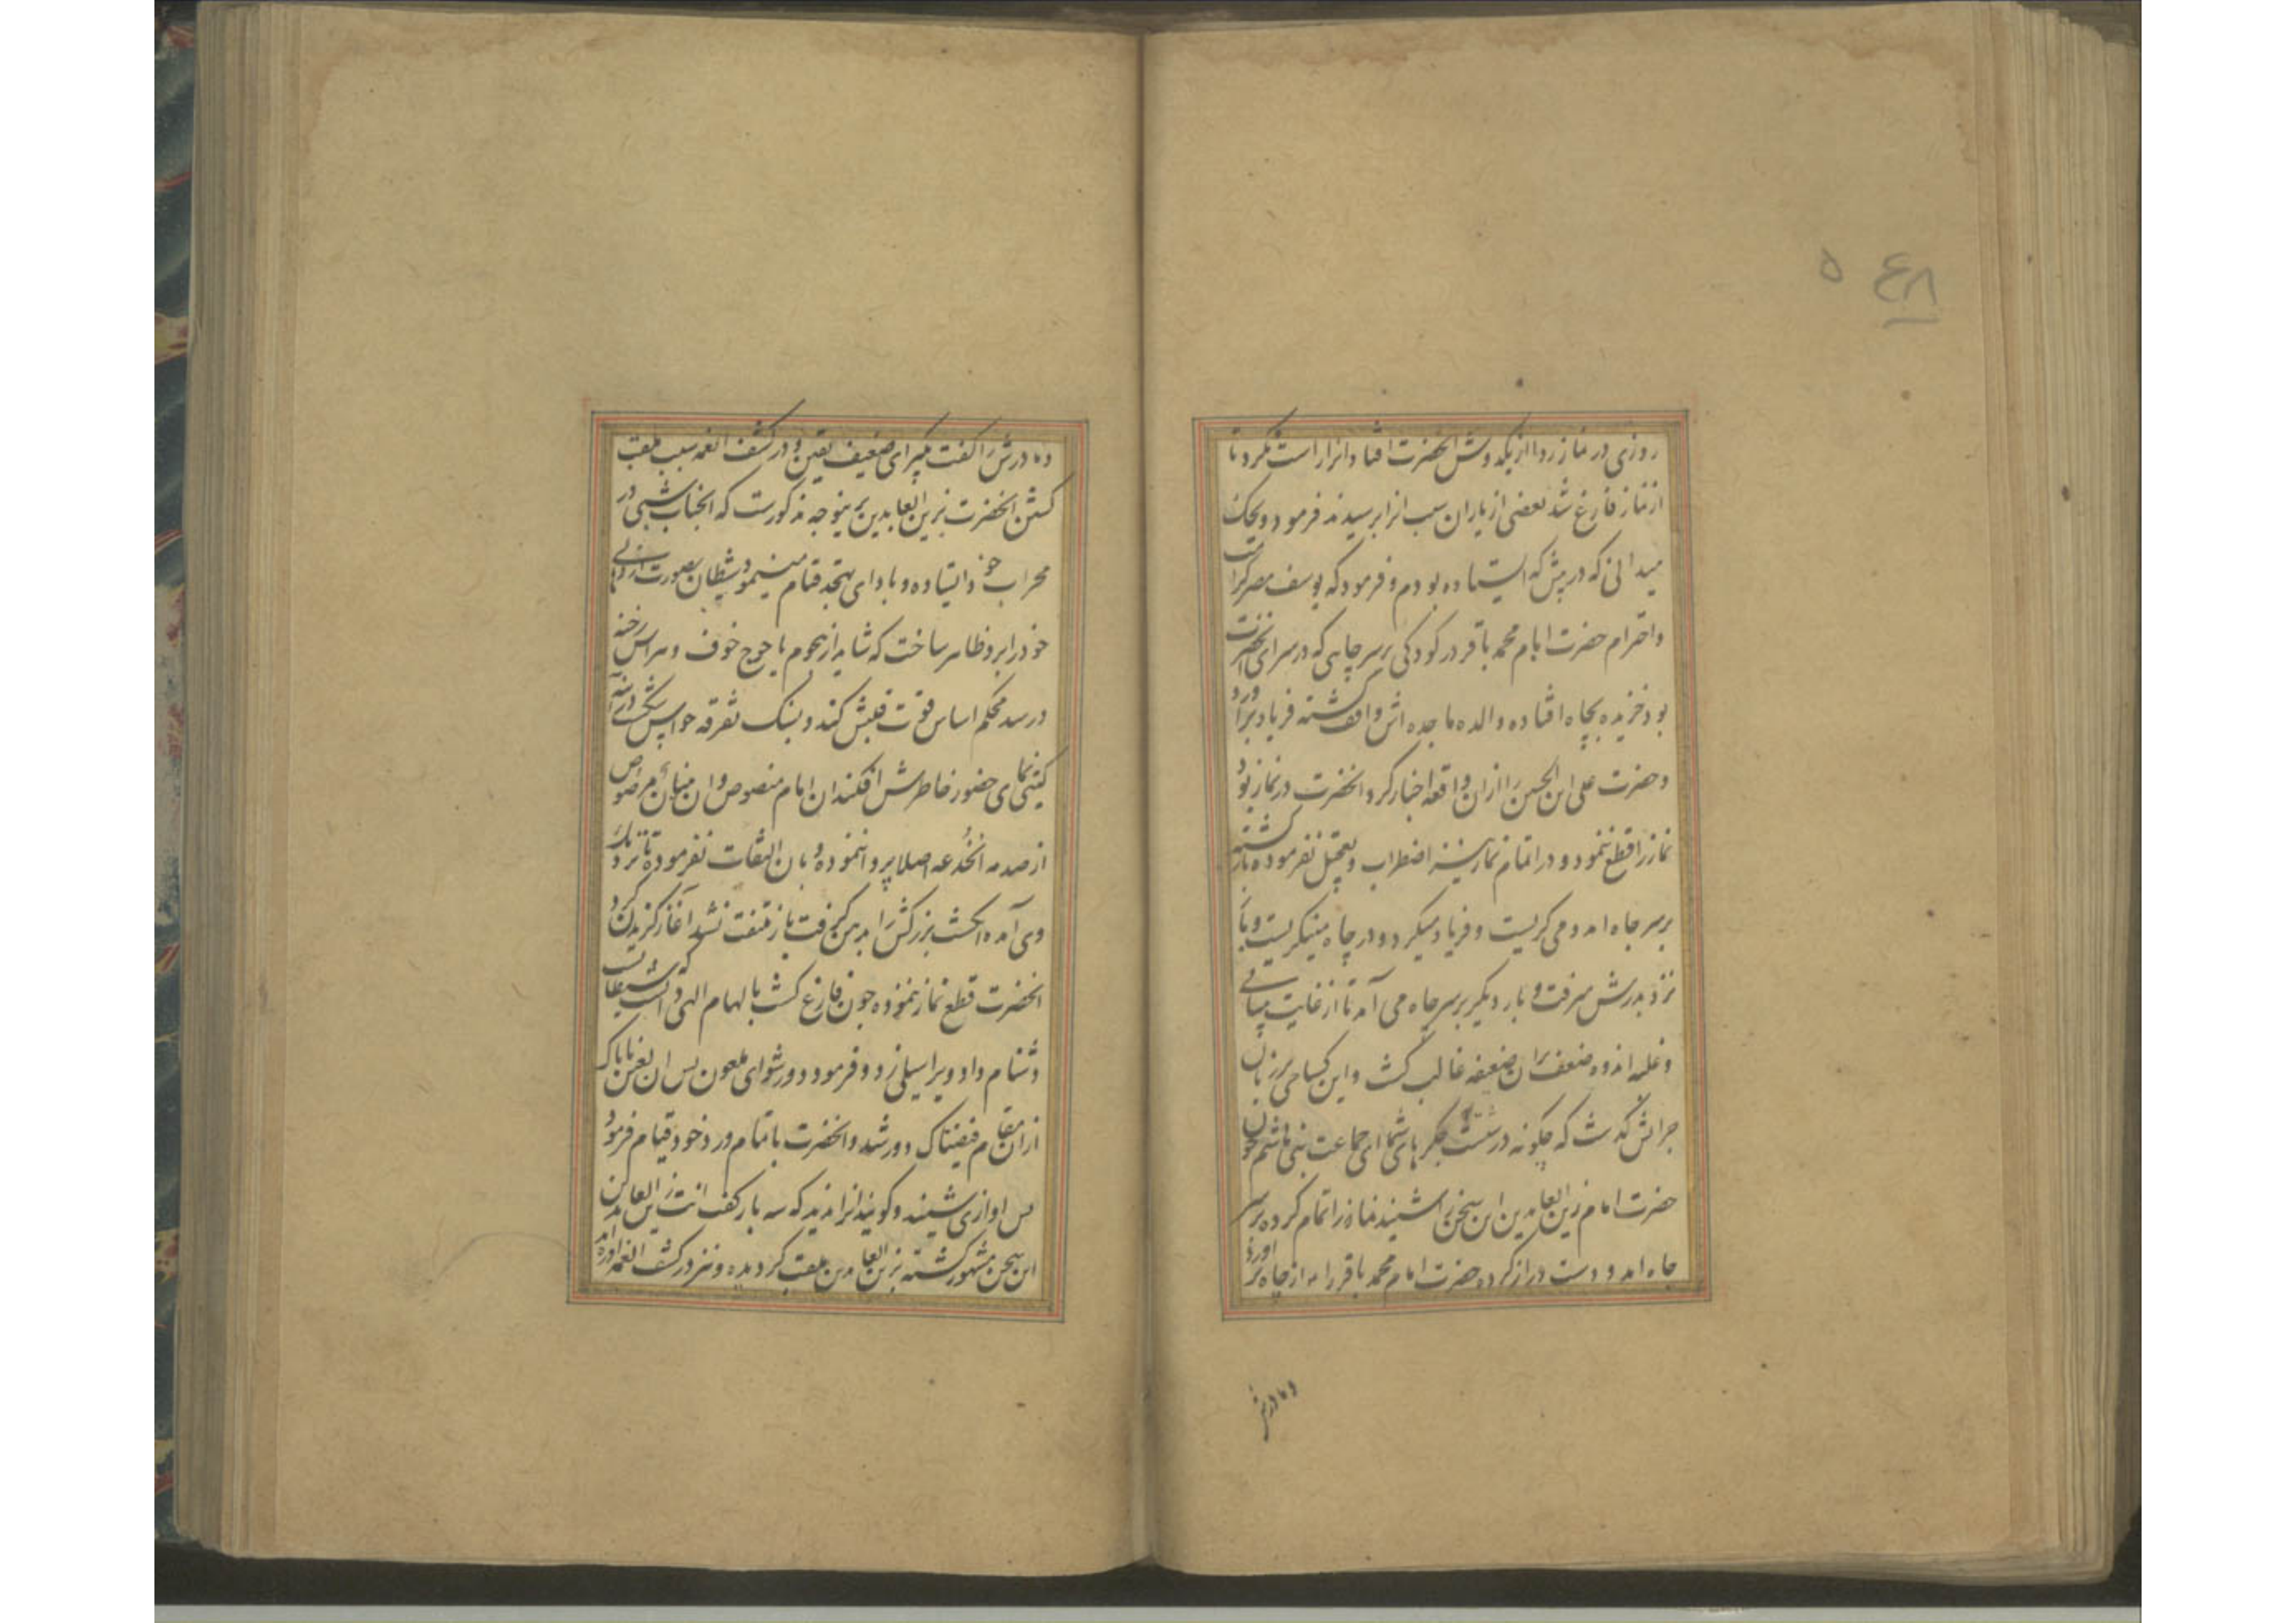 روزی در نماز ردا از یکدوش انحضرت افتاد و انرا راست نکرد تا
از نماز فارغ شد بعضی از یاران سبب انرا پرسیدند فرمود ویحک
میدانی که در پیش که ایستاده بودم و فرمود که یوسف مصر کرامت
و احترام حضرت امام محمد باقر در کودکی بر سر چاهی که در سرای انحضرت
بود خزیده بچاه افتاده والده ماجده اش واقف کشته فریاد براورد
و حضرت علی ابن الحسین را ازان واقعه اخبار کرد انحضرت در نماز بود
نماز را قطع ننمود و در اتمام نماز نیز اضطراب و تعجیل نفرموده باز کشته
بر سر چاه امد و می کریست و فریاد میکرد و در چاه مینکریست و باز
نزد پدرش میرفت و بار دیکر بر سر چاه می آمد تا از غایت بیتابی
و غلبه اندوه ضعف بران ضعیفه غالب کشت و این کستاخی بر زبان
جراتش کذشت که چکونه درشتست جکر های شما ای جماعت بنی هاشم چون
حضرت امام زین العابدین این سخن را شنید نماز را تمام کرده بر سر
چاه امد و دست دراز کرده حضرت امام محمد باقر را از چاه براورد
و مادرش
۵ ۴۸
و مادرش را کفت بکیر ای ضعیف یقین و در کشف الغمه سبب ملقب
کشتن انحضرت بزین العابدین برینوجه مذکورست که انجناب شبی در
محراب خود ایستاده و بادای تهجد قیام مینمود شیطان بصورت اژدهایی
خود را برو ظاهر ساخت که شاید از هجوم یاجوج خوف و هراس رخنه
در سد محکم اساس قوت قلبش کند و بسنک تفرقه حواس شکستی در آینه
کیتی نمای حضور خاطرش افکند ان امام منصوص و ان بنیان مرصوص
از صدمه انخدعه اصلا پروا ننموده و بان التفات نفرموده تا نزدیک
وی آمده انکشت بزرکش را بدهن کرفت باز ملتفت نشد آغاز کزیدن کرد
انحضرت قطع نماز ننموده چون فارغ کشت بالهام الهی دانست که شیطانست
دشنام داد و ویرا سیلی زد و فرمود دور شو ای ملعون پس ان لعین ناپاک
ازان مقام فیضناک دور شد و انحضرت باتمام ورد خود قیام فرمود
پس اوازی شنید و کوینده را ندید که سه بار کفت انت زین العابدین
این سخن مشهور کشته بزین العابدین ملقب کردیده و نیز در کشف الغمه اورده اند